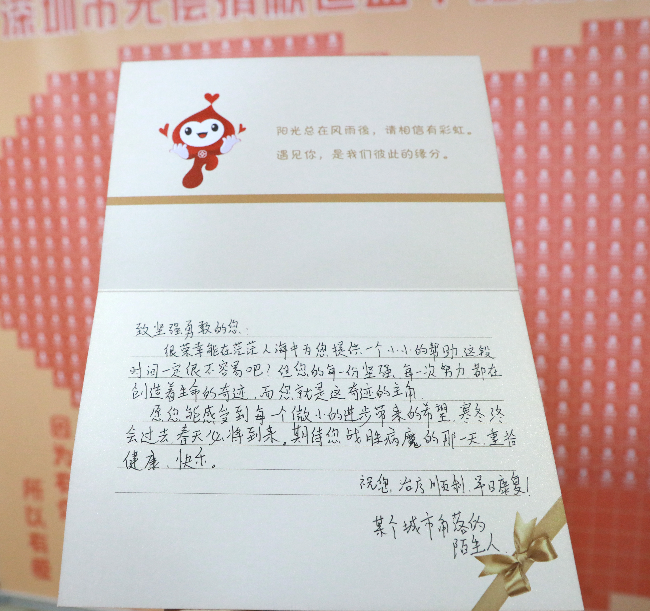 深圳市无偿捐献造血干
阳光总在风雨後，请相信有彩虹。
遇见你，是我们彼此的缘分。
致坚强勇敢的您：
很荣幸能在茫茫人海中为您提供一个小小的帮助，这段
时间一定很不容易吧？但您的每一份坚强、每一次努力都在
创造着生命的奇迹，而您就是这奇迹的主角。
愿您能感受到每一个微小的进步带来的希望，寒冬终
会过去，春天必将到来。期待您战胜病魔的那一天，重拾
健康、快乐。
祝您：治疗顺利，早日康复！
某个城市角落的
陌生人
因为有
所以有缘